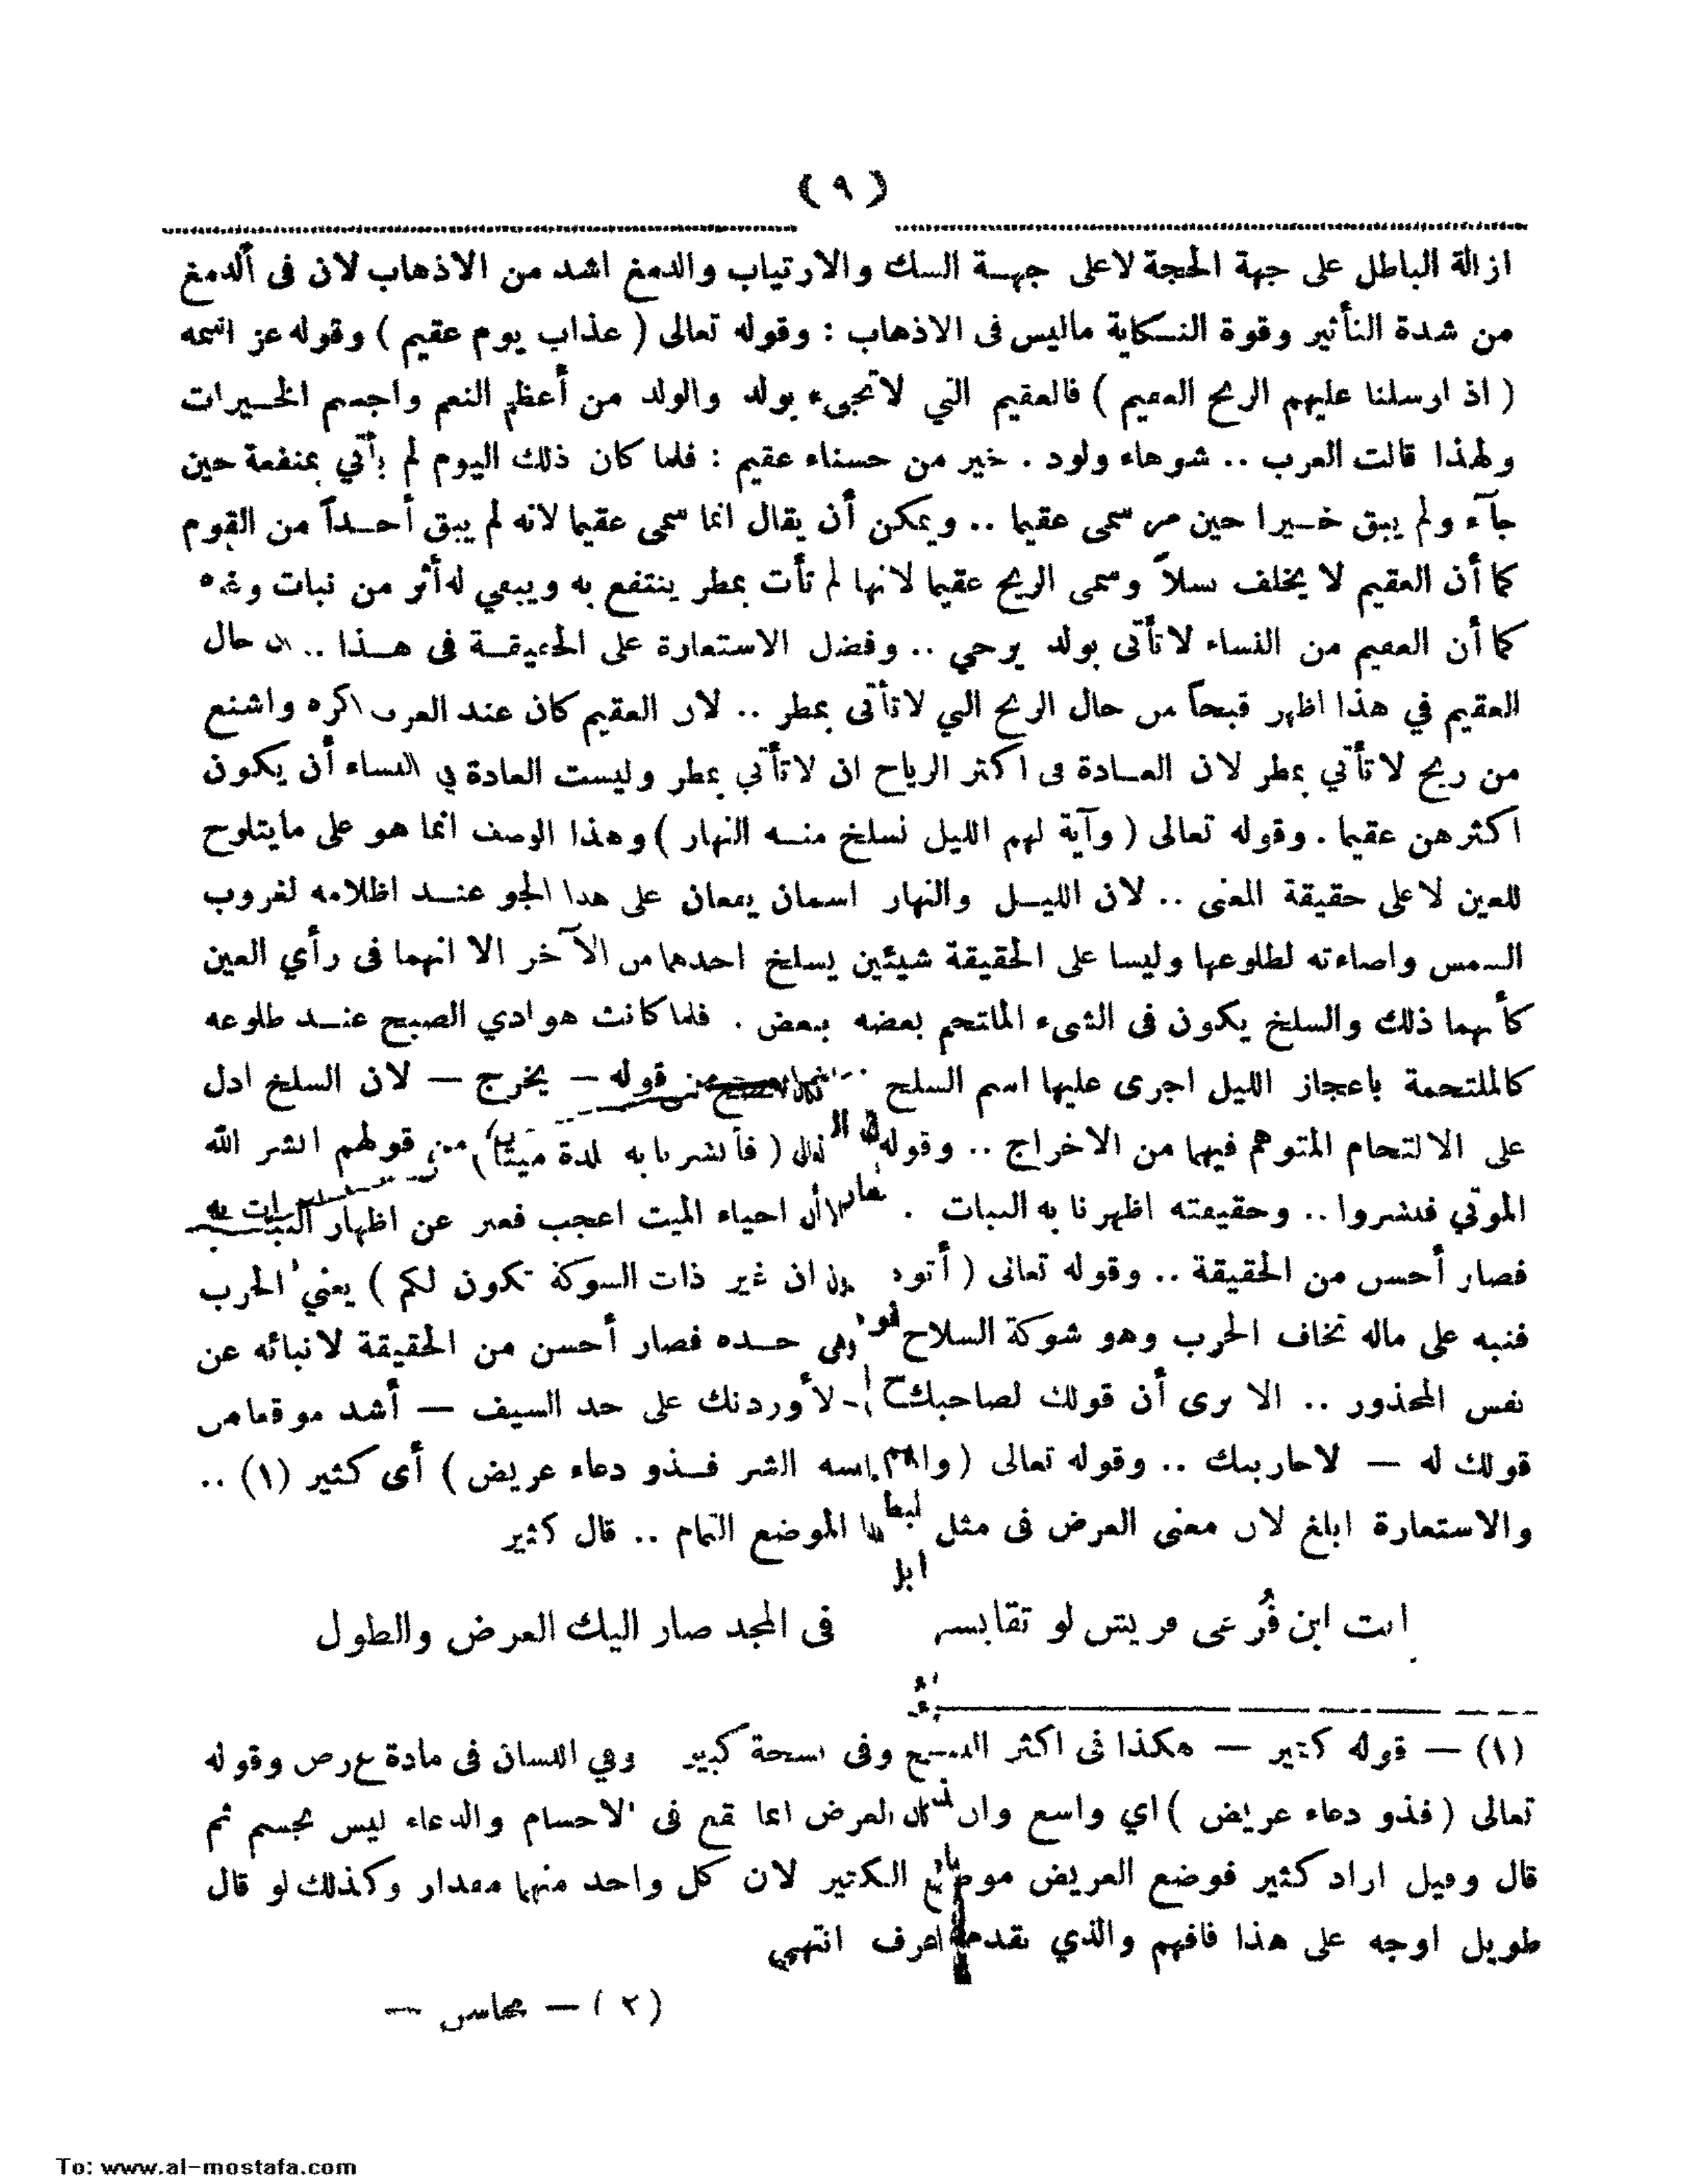 ( ٩ )
ازالة الباطل على جهة الحجة لاعلى جهة الشك والارتياب والدمغ اشد من الاذهاب لان فى ألدمغ
من شدة التأثير وقوة النكاية ماليس فى الاذهاب : وقوله تعالى ( عذاب يوم عقيم ) وقوله عز اسمه
( اذ ارسلنا عليهم الريح العقيم ) فالعقيم التي لاتجىء بولد والولد من أعظم النعم واجسم الخيرات
ولهذا قالت العرب .. شوهاء ولود . خير من حسناء عقيم : فلما كان ذلك اليوم لم يأتي بمنفعة حين
جآء ولم يبق خيرا حين مر سمى عقيما .. ويمكن أن يقال انما سمى عقيما لانه لم يبق أحداً من القوم
كما أن العقيم لا يخلف نسلاً وسمى الريح عقيما لانها لم تأت بمطر ينتفع به ويبقي له أثر من نبات وغيره
كما أن العقيم من النساء لاتأتى بولد يرجي .. وفضل الاستعارة على الحقيقة فى هذا .. ان حال
العقيم في هذا اظهر قبحاً من حال الريح التي لاتأتى بمطر .. لان العقيم كان عند العرب اكره واشنع
من ريح لاتأتي بمطر لان العادة فى اكثر الرياح ان لاتأتي بمطر وليست العادة في النساء أن يكون
اكثرهن عقيما . وقوله تعالى ( وآية لهم الليل نسلخ منه النهار ) وهذا الوصف انما هو على مايتلوح
للعين لاعلى حقيقة المعنى .. لان الليل والنهار اسمان يقعان على هذا الجو عند اظلامه لغروب
الشمس واضاءته لطلوعها وليسا على الحقيقة شيئين يسلخ احدهما من الآخر الا انهما فى رأي العين
كأنهما ذلك والسلخ يكون فى الشىء الملتحم بعضه ببعض . فلما كانت هوادي الصبح عند طلوعه
كالملتحمة باعجاز الليل اجرى عليها اسم السلخ من قوله — يخرج — لان السلخ ادل
على الالتحام المتوهم فيهما من الاخراج .. وقوله تعالى ( فأنشرنا به بلدة ميتاً ) من قولهم انشر الله
الموتي فنشروا .. وحقيقته اظهرنا به النبات . لأن احياء الميت اعجب فعبر عن اظهار النبات به
فصار أحسن من الحقيقة .. وقوله تعالى ( أتودون ان غير ذات الشوكة تكون لكم ) يعني الحرب
فنبه على ماله تخاف الحرب وهو شوكة السلاح وهى حده فصار أحسن من الحقيقة لانبائه عن
نفس المحذور .. الا ترى أن قولك لصاحبك — لأوردنك على حد السيف — أشد موقعا من
قولك له — لاحاربنك .. وقوله تعالى ( واذا مسه الشر فذو دعاء عريض ) أى كثير (١) ..
والاستعارة ابلغ لان معنى العرض فى مثل هذا الموضع التمام .. قال كثير
انت ابن فُرعى قريش لو تقايسه فى المجد صار اليك العرض والطول
(١) — قوله كثير — هكذا فى اكثر النسخ وفى نسخة كبير وفي اللسان فى مادة ع رض وقوله
تعالى ( فذو دعاء عريض ) اي واسع وان كان العرض انما يقع فى الاجسام والدعاء ليس بجسم ثم
قال وقيل اراد كثير فوضع العريض موضع الكثير لان كل واحد منهما مقدار وكذلك لو قال
طويل اوجه على هذا فافهم والذي تقدم اعرف انتهى
(٢) — محاسن —
To: www.al-mostafa.com